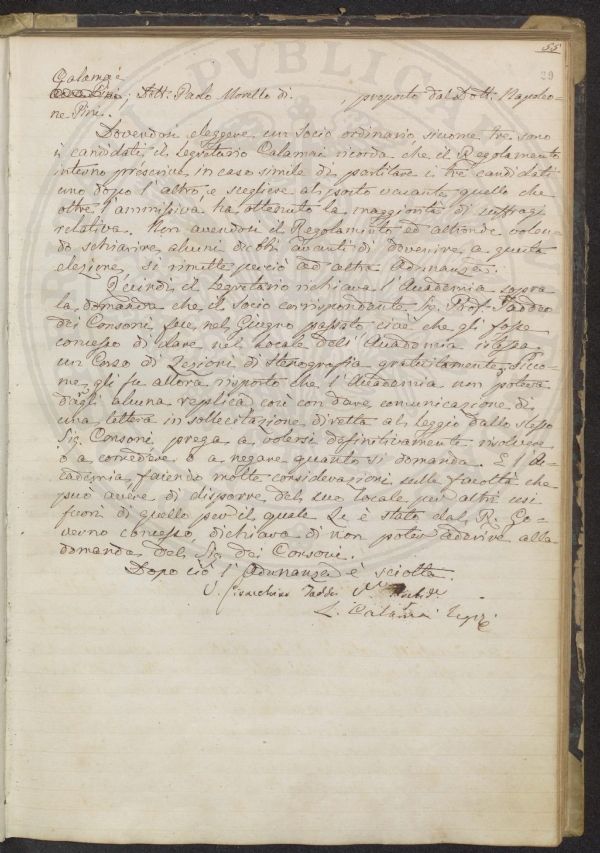 55
39
Calamai
Dott: Paolo Morello di , proposto dal Dott: Napoleo-
ne Pini.
Dovendosi eleggere un Socio ordinario, siccome tre sono
i candidati, il Segretario Calamai ricorda che il Regolamento
interno prescrive in caso simile di partitare i tre candidati
uno dopo l'altro, e scegliere al posto vacante quello che
oltre l'ammissiva, ha ottenuto la maggiorità di suffragi
relativa. Non avendosi il Regolamento ed altronde volen-
do schiarire alcuni articoli avanti di devenire a questa
elezione, si rimette perciò ad altra Adunanza.
Quindi il Segretario richiama l'Accademia sopra
la domanda che il Socio corrispondente Sig. Prof. Taddeo
dei Consoni fece nel Giugno passato cioè che gli fosse
concesso di dare nel Locale dell'Accademia istessa
un Corso di Lezioni di stenografia gratuitamente. Sicco-
me gli fu allora risposto che l'Accademia non poteva
dargli alcuna replica così con dare comunicazione di
una lettera in sollecitazione diretta al Seggio dallo stesso
Sig. Consoni prega a volersi definitivamente risolvere
o a concedere o a negare quanto si domanda. E l'Ac-
cademia, facendo molte considerazioni sulle facoltà che
può avere di disporre del suo locale per altri usi
fuori di quello per il quale Le è stato dal R. Go-
verno concesso, dichiara di non poter aderire alla
domanda del Sig. dei Consoni.
Dopo ciò l'Adunanza è sciolta.
Gioacchino Taddei V.
L. Calamai Seg.